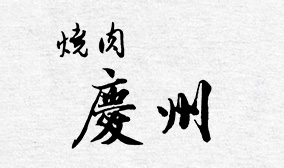 焼肉
慶州